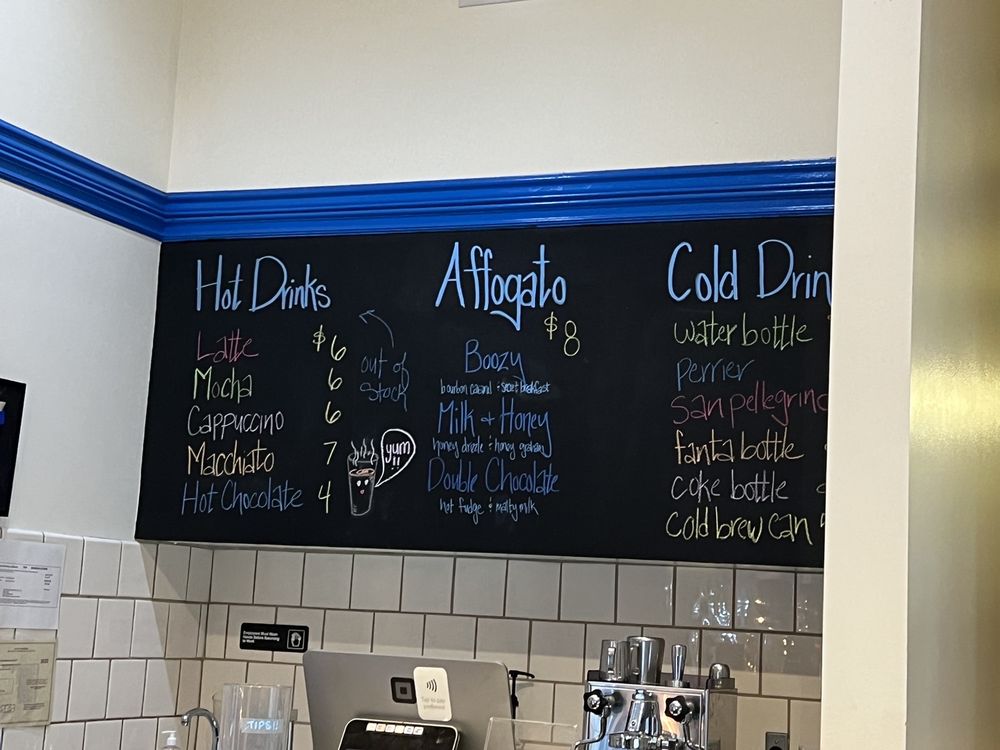 Hot Drinks
Latte $6
Mocha 6
Cappuccino 6
Macchiato 7
Hot Chocolate 4
out of
stock
yum
!!
Affogato
$8
Boozy
bourbon caramel + sweet breakfast
Milk + Honey
honey drizzle + honey graham
Double Chocolate
hot fudge & malty milk
Cold Drin
water bottle
perrier
san pellegrino
fanta bottle
coke bottle
cold brew can
Employees Must Wash
Hands Before Returning
to Work
TIPS!
Tap to pay